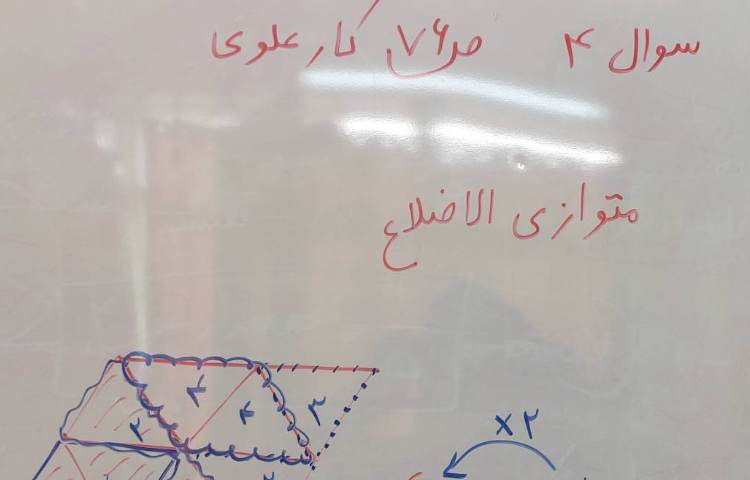 سوال ۴ ص ۷۶ کار علوی
متوازی الاضلاع
×۲